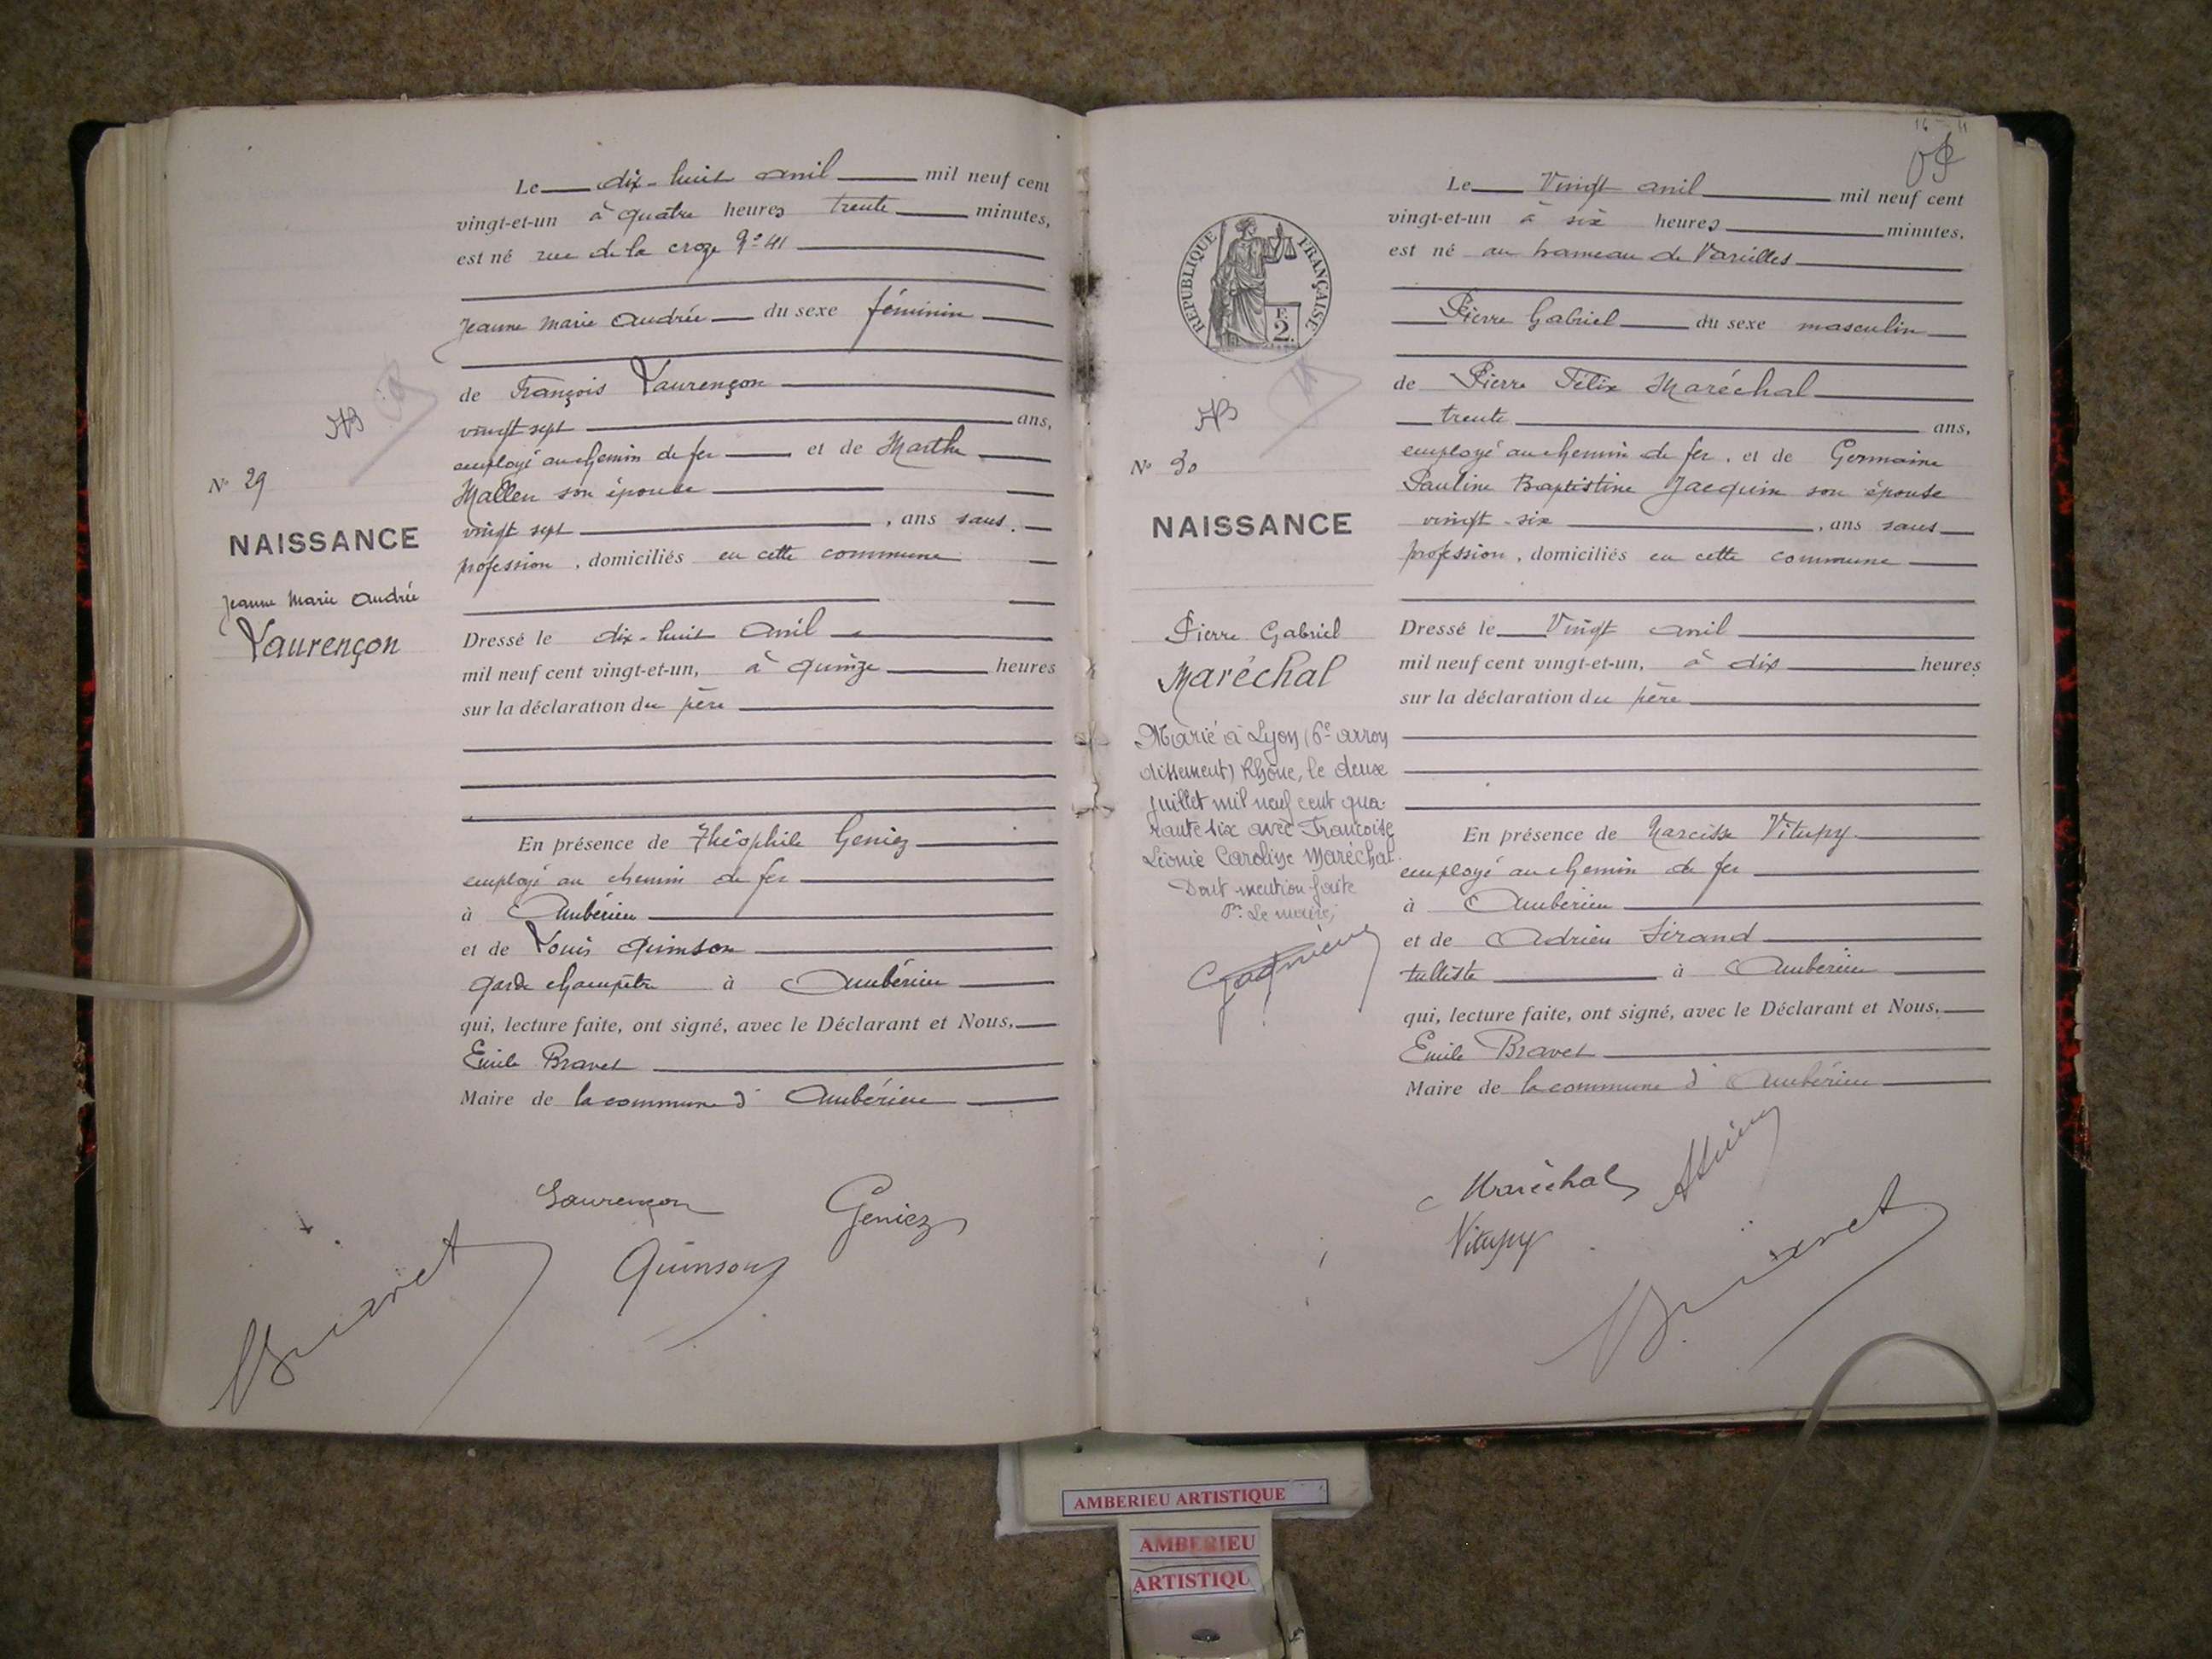 Le dix-huit avril mil neuf cent
vingt-et-un à quatre heures trente minutes,
est né rue de la croze N° 41
Jeanne Marie Andrée du sexe féminin
de François Laurençon
vingt sept ans,
employé au chemin de fer et de Marthe
Mallen son épouse
N° 29
vingt sept , ans sans
NAISSANCE
profession , domiciliés en cette commune
Jeanne Marie Andrée
Laurençon
Dressé le dix-huit Avril
mil neuf cent vingt-et-un, à quinze heures
sur la déclaration du père
En présence de Théophile Geniez
employé au chemin de fer
à Ambérieu
et de Louis Quinson
garde champêtre à Ambérieu
qui, lecture faite, ont signé, avec le Déclarant et Nous,
Emile Bravet
Maire de la commune d'Ambérieu
Laurençon Geniez
Quinson
Bravet
Le Vingt avril mil neuf cent
vingt-et-un à six heures minutes,
est né au hameau de Vareilles
REPUBLIQUE FRANÇAISE
2
Pierre Gabriel du sexe masculin
de Pierre Félix Maréchal
trente ans,
employé au chemin de fer, et de Germaine
N° 30
Pauline Baptistine Jacquin son épouse
NAISSANCE
vingt-six , ans sans
profession , domiciliés en cette commune
Pierre Gabriel
Maréchal
Dressé le Vingt avril
mil neuf cent vingt-et-un, à dix heures
sur la déclaration du père
Marié à Lyon (6e arron
dissement) Rhône, le deux
juillet mil neuf cent qua-
rante six avec Françoise
Léonie Caroline Maréchal.
Dont mention faite
Pr. Le maire,
En présence de Narcisse Vitupy
employé au chemin de fer
à Ambérieu
et de Adrien Sirand
tulliste à Ambérieu
qui, lecture faite, ont signé, avec le Déclarant et Nous,
Emile Bravet
Maire de la commune d'Ambérieu
Maréchal
Vitupy
Bravet
AMBERIEU ARTISTIQUE
AMBERIEU
ARTISTIQU